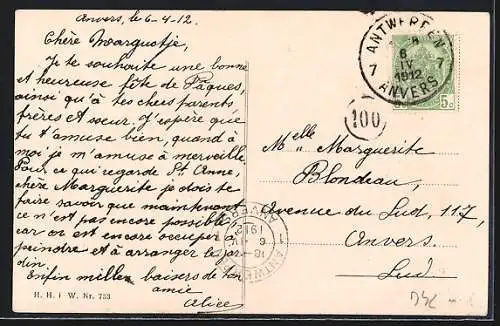 Anvers, le 6-4.12.
Chère Marguotje,
Je te souhaite une bonne
et heureuse fête de Pâques,
ainsi qu'à tes chers parents
frères et sœur. J'espère que
tu t'amuse bien, quand à
moi je m'amuse à merveille.
Pour ce qui regarde St. Anne,
chère Marguerite je dois te
faire savoir que maintenant
ce n'est pas encore possible
car on est encore occupé à
peindre et à arranger le jar-
din.
Enfin milles baisers de ton
amie
Alice
H. H. i W. Nr. 753
ANTWERPEN
7 6 IV 1912 7
ANVERS
5c
100
Melle Marguerite
Blondeau,
Avenue du Sud, 117,
Anvers.
Sud
ANVERS
1912
6 IV
18-
1 ANTWERPEN 1